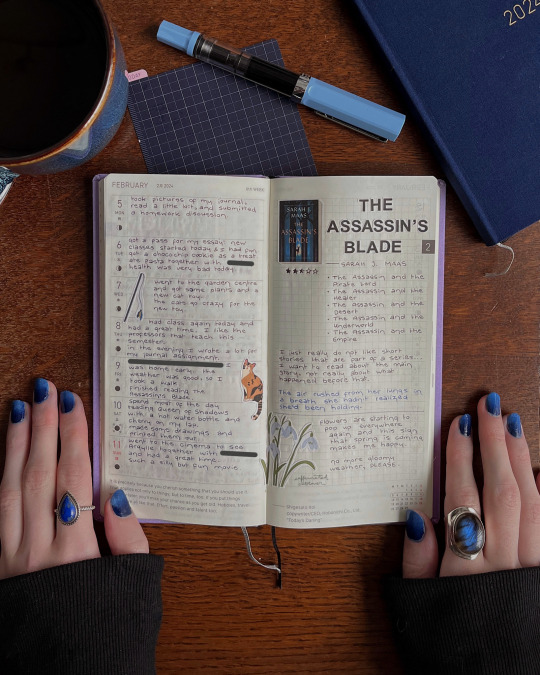 2024
FEBRUARY
5
MON
took pictures of my journal,
read a little bit, and submitted
a homework discussion.
6
got a pass for my essay. new
classes started today & I had fun.
got a chocochip cookie as a treat
ate pasta together with
health was very bad today
7
WED
went to the garden centre
and got some plants and a
new cat toy.
The cats go crazy for the
new toy.
8
THU
had class again today and
had a great time. I like the
professors that teach this
semester.
in the evening I wrote a bit for
my journal assignment.
9
FRI
was home early. the
weather was good, so I
took a walk.
Finished reading The
Assassin's Blade.
10
SAT
Spend most of the day
reading Queen of Shadows
with a hot water bottle and
cherry on my lap.
made some drawings and
printed them out.
11
went to the cinema to see
Argylle together with
and had a great time.
such a silly but fun movie
SARAH J.
MAAS
THE
ASSASSIN'S
BLADE
THE
ASSASSIN'S
BLADE
2
SARAH J. MAAS
• The Assassin and the
Pirate Lord
• The Assassin and the
Healer
• The Assassin and the
Desert
• The Assassin and the
Underworld
• The Assassin and the
Empire
I just really do not like short
stories that are part of a series...
I want to read about the main
story, not really about what
happened before that.
The air rushed from her lungs in
a breath she hadn't realized
she'd been holding.
Flowers are starting to
pop up everywhere
again and this sign
that spring is coming
makes me happy.
no more gloomy
weather, please